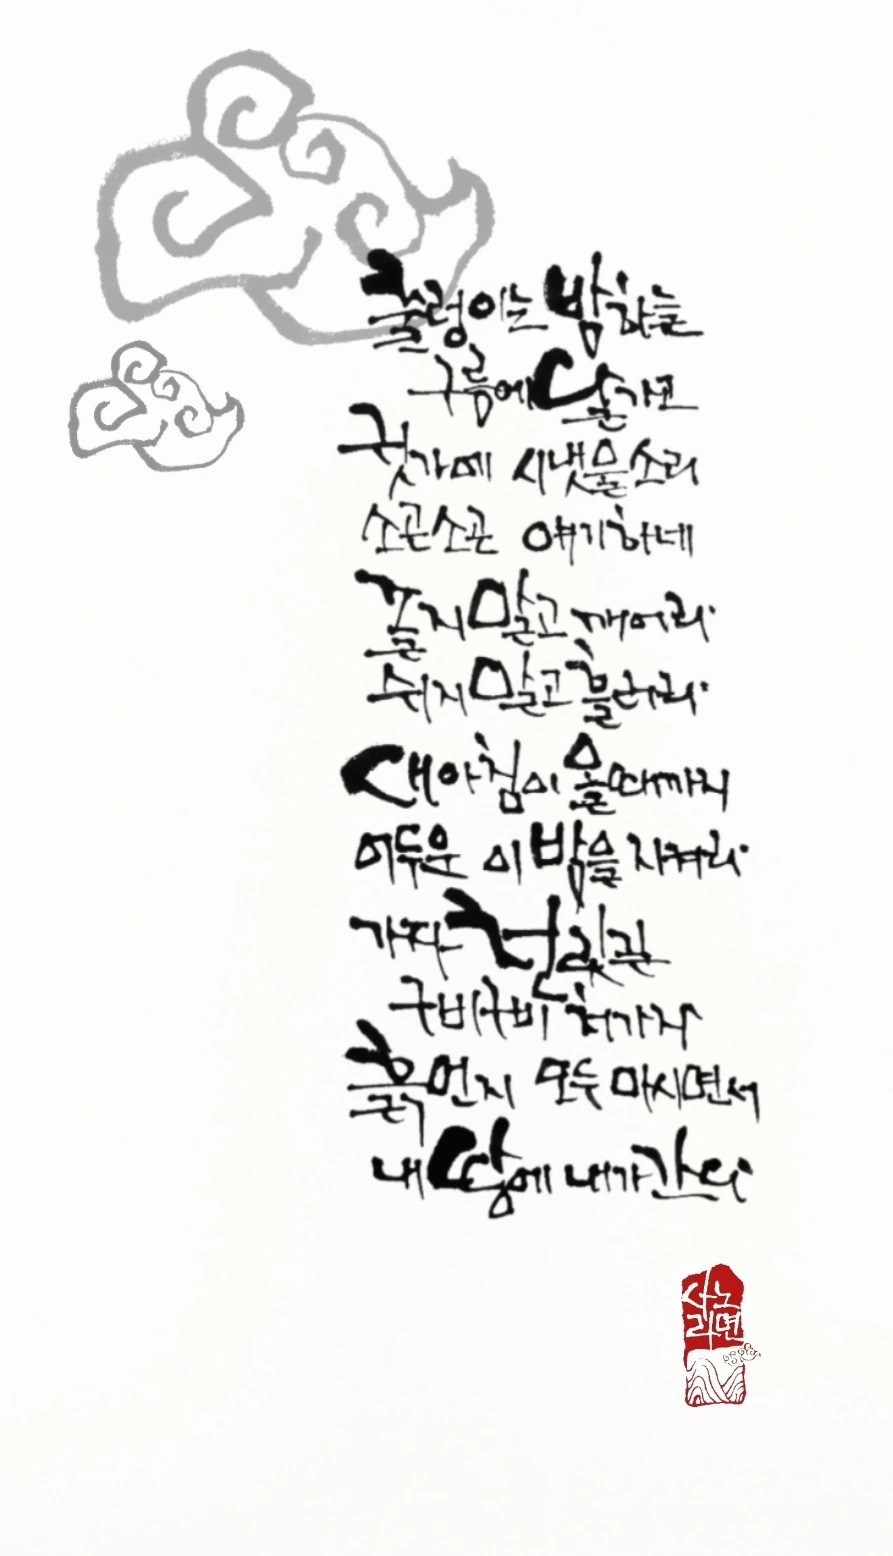 출렁이는 밤하늘
구름에 달가고
귓가에 시냇물소리
소곤소곤 얘기하네
졸지말고 깨어라
쉬지말고 흘러라
새아침이 올때까지
어두운 이 밤을 지켜라
가자 천릿길
구비구비 쳐가자
흙먼지 모두 마시면서
내땅에 내가간다
사노
라면